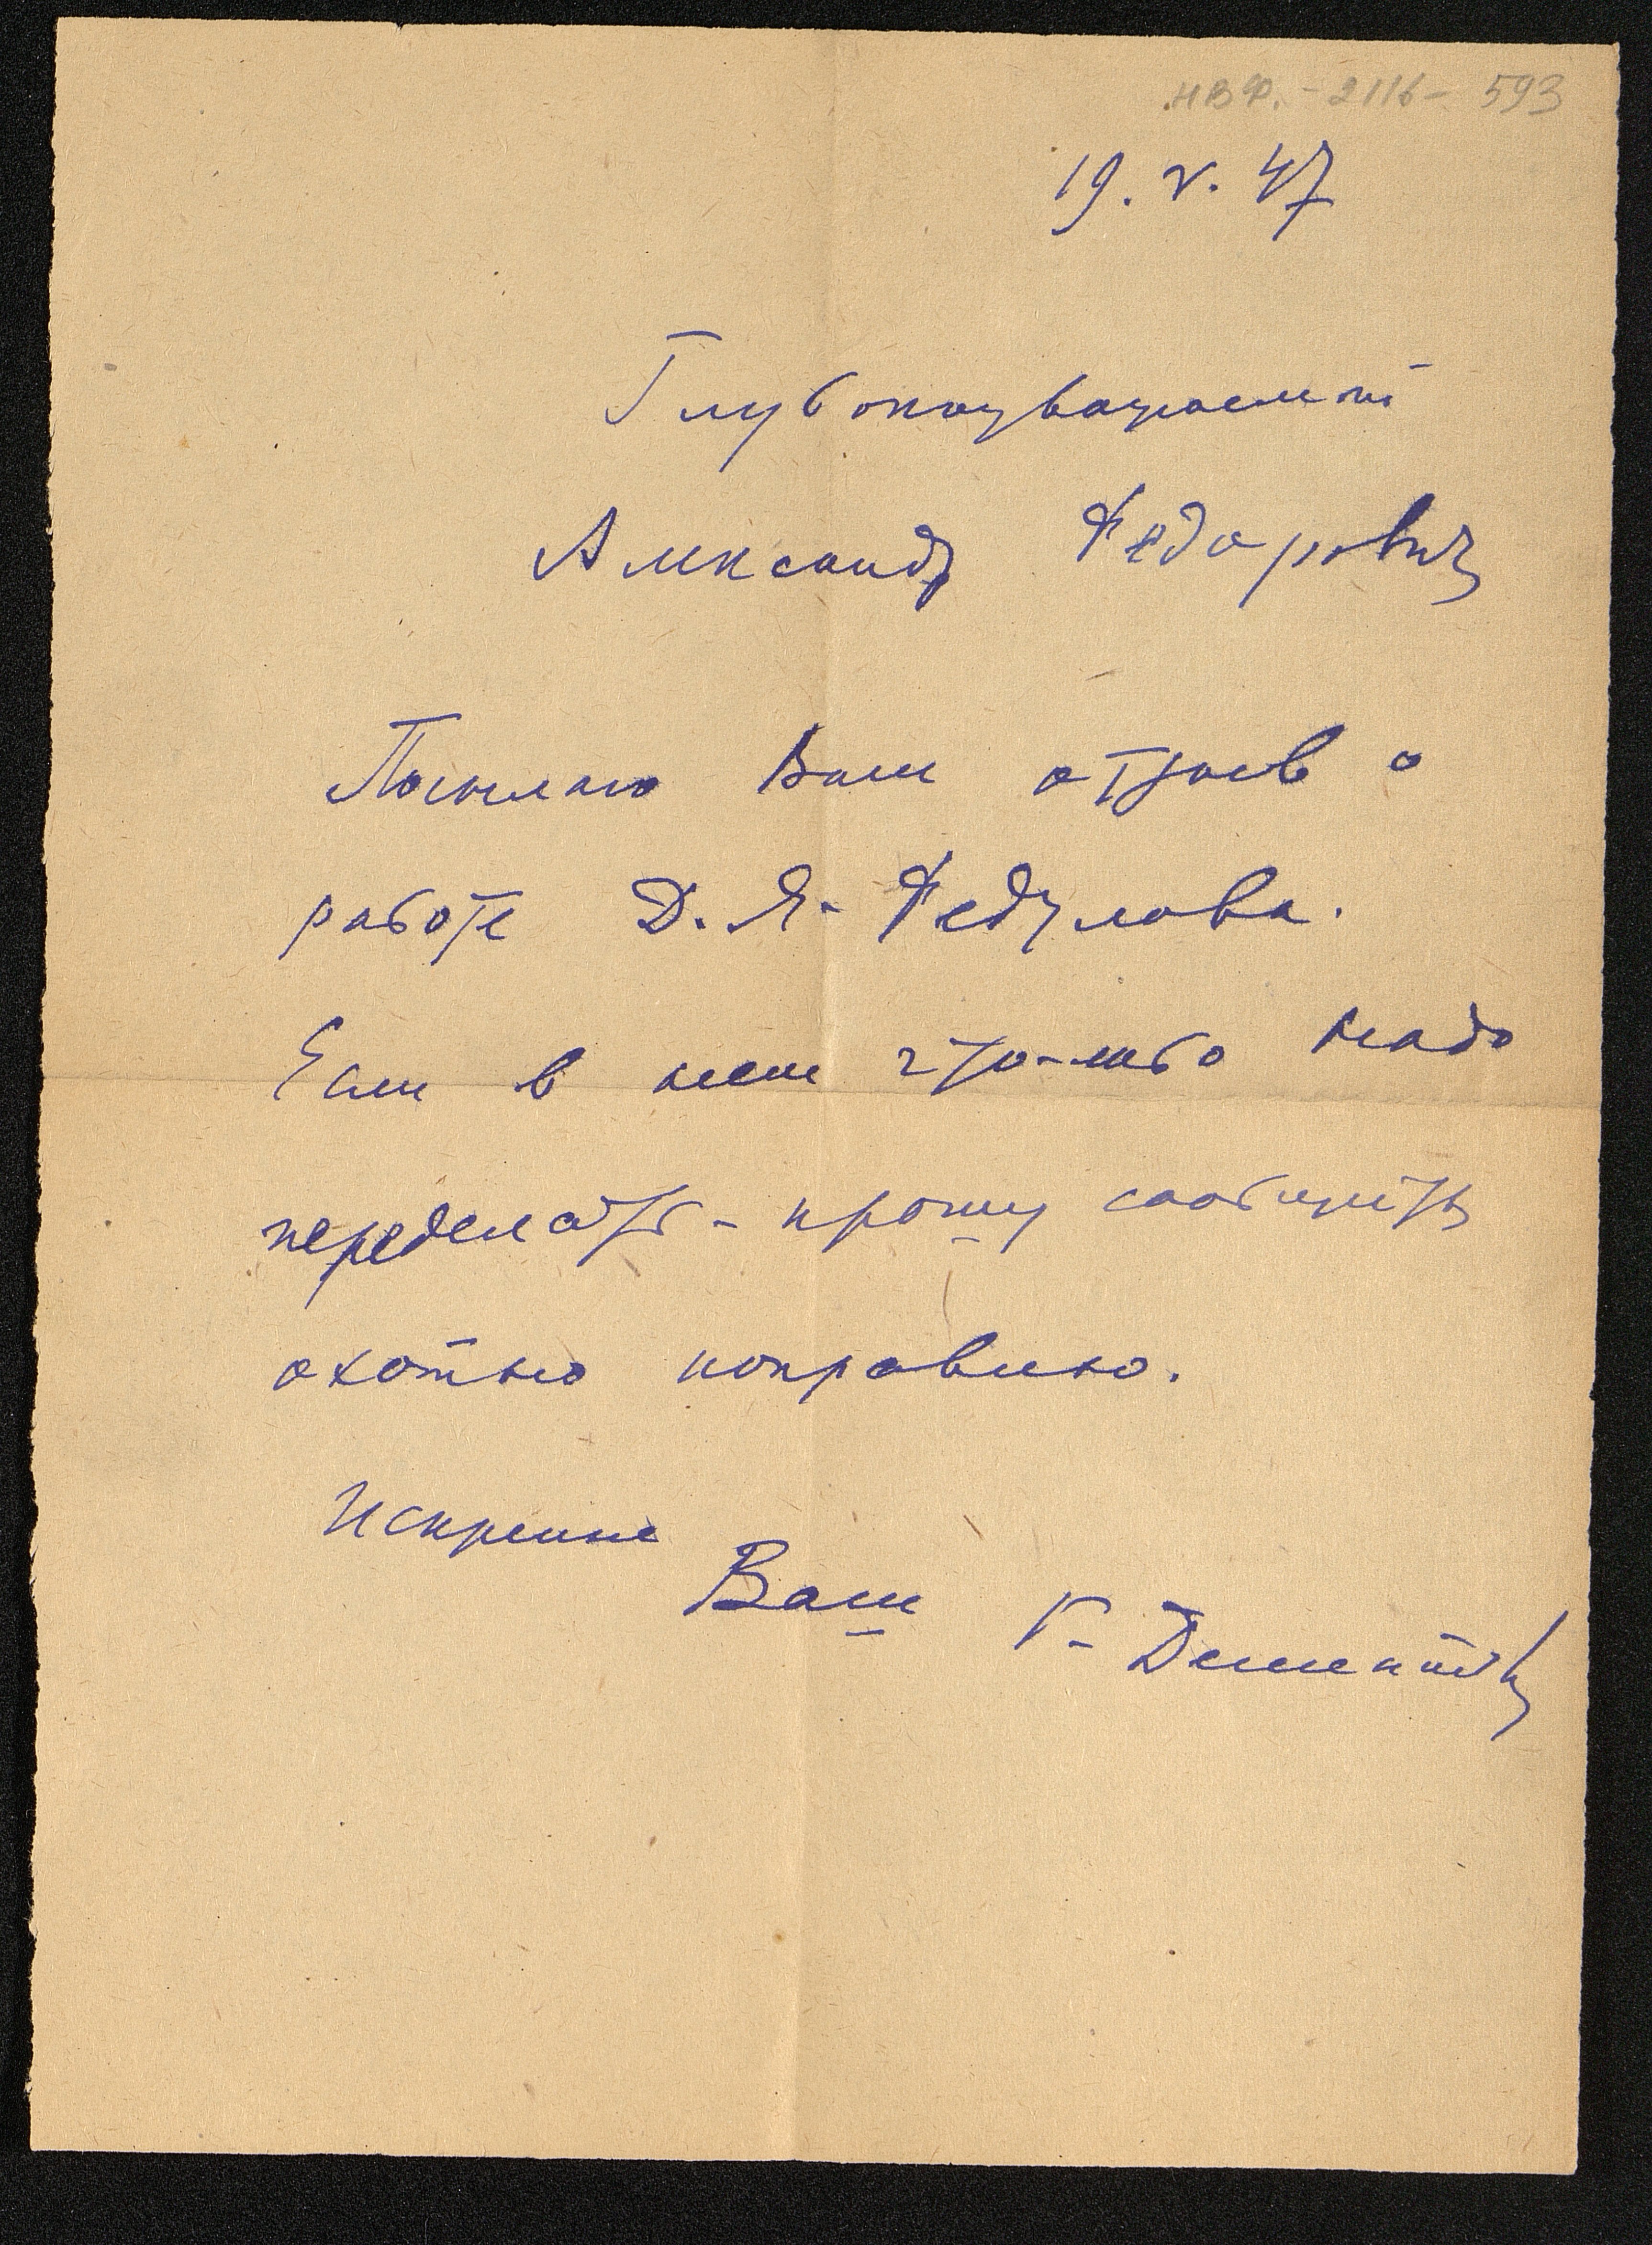 НВФ.-2116-593
19.V.47
Глубокоуважаемый
Александр Федорович
Посылаю Вам отзыв о
работе Д.Я. Федулова.
Если в нем что-либо надо
переделать - прошу сообщить
охотно поправлю.
Искренне
Ваш Г. Дементьев